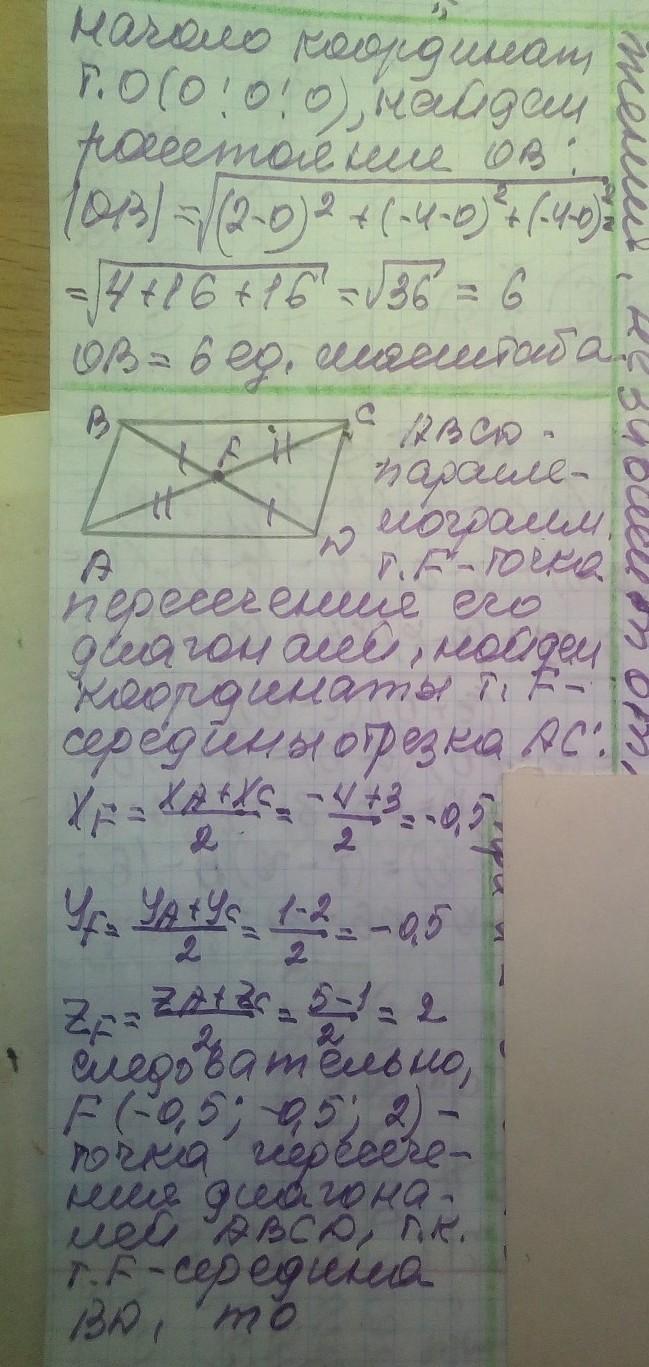 начало координат
т. O(0; 0; 0), найдем
расстояние OB:
|OB| = √((2-0)² + (-4-0)² + (-4-0)²) =
= √(4+16+16) = √36 = 6
OB = 6 ед. масштаба.
B C
F
A D
ABCD -
паралле-
лограмм.
т. F - точка
пересечения его
диагоналей, найдем
координаты т. F -
середины отрезка AC:
X_F = (X_A + X_C)/2 = (-4+3)/2 = -0,5
Y_F = (Y_A + Y_C)/2 = (1-2)/2 = -0,5
Z_F = (Z_A + Z_C)/2 = (5-1)/2 = 2
следовательно,
F (-0,5; -0,5; 2) -
точка пересече-
ния диагона-
лей ABCD, т.к.
т. F - середина
BD, то